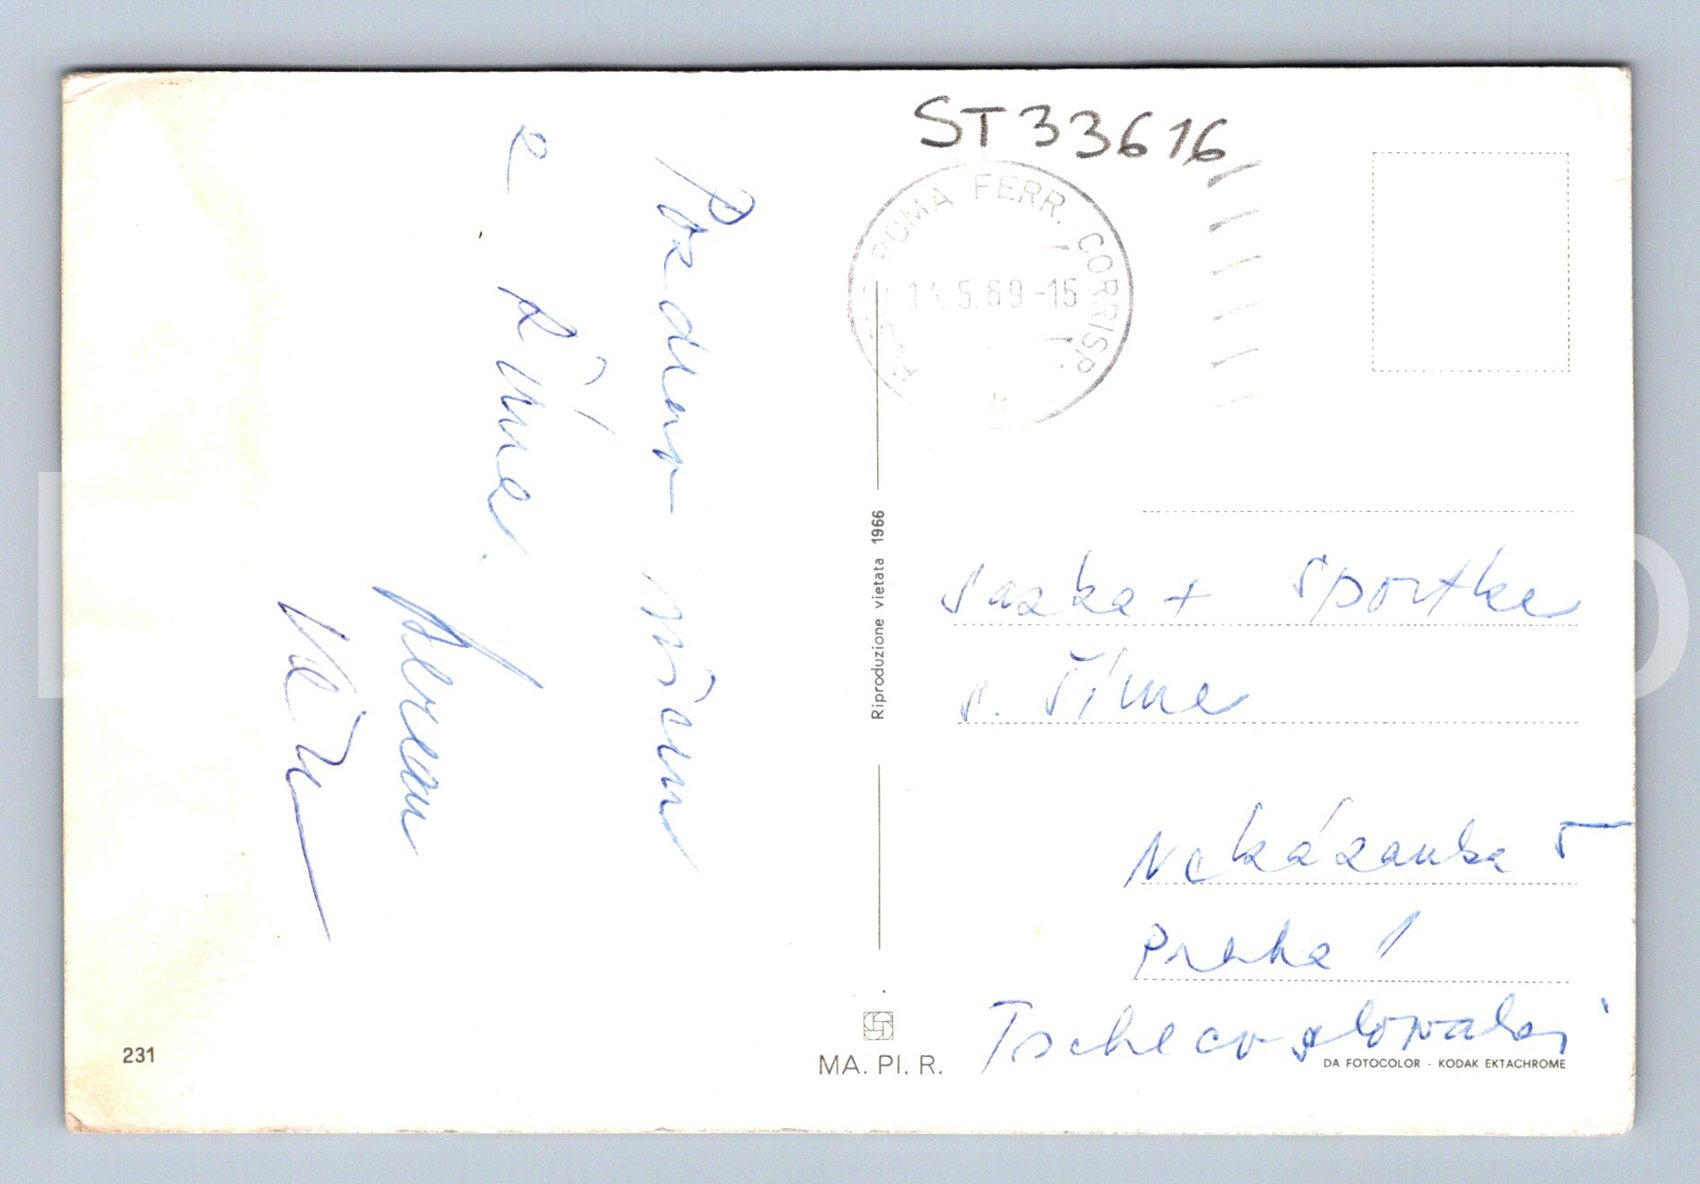 ST33616
ROMA FERR. CORRISP.
5.69-15
Pozdrav všem
z Říma.
Sazka + Sportka
s. Šíma
Nekázanka 5
Praha 1
Tschecoslovakei
Riproduzione vietata 1966
231
MA. PI. R.
DA FOTOCOLOR - KODAK EKTACHROME